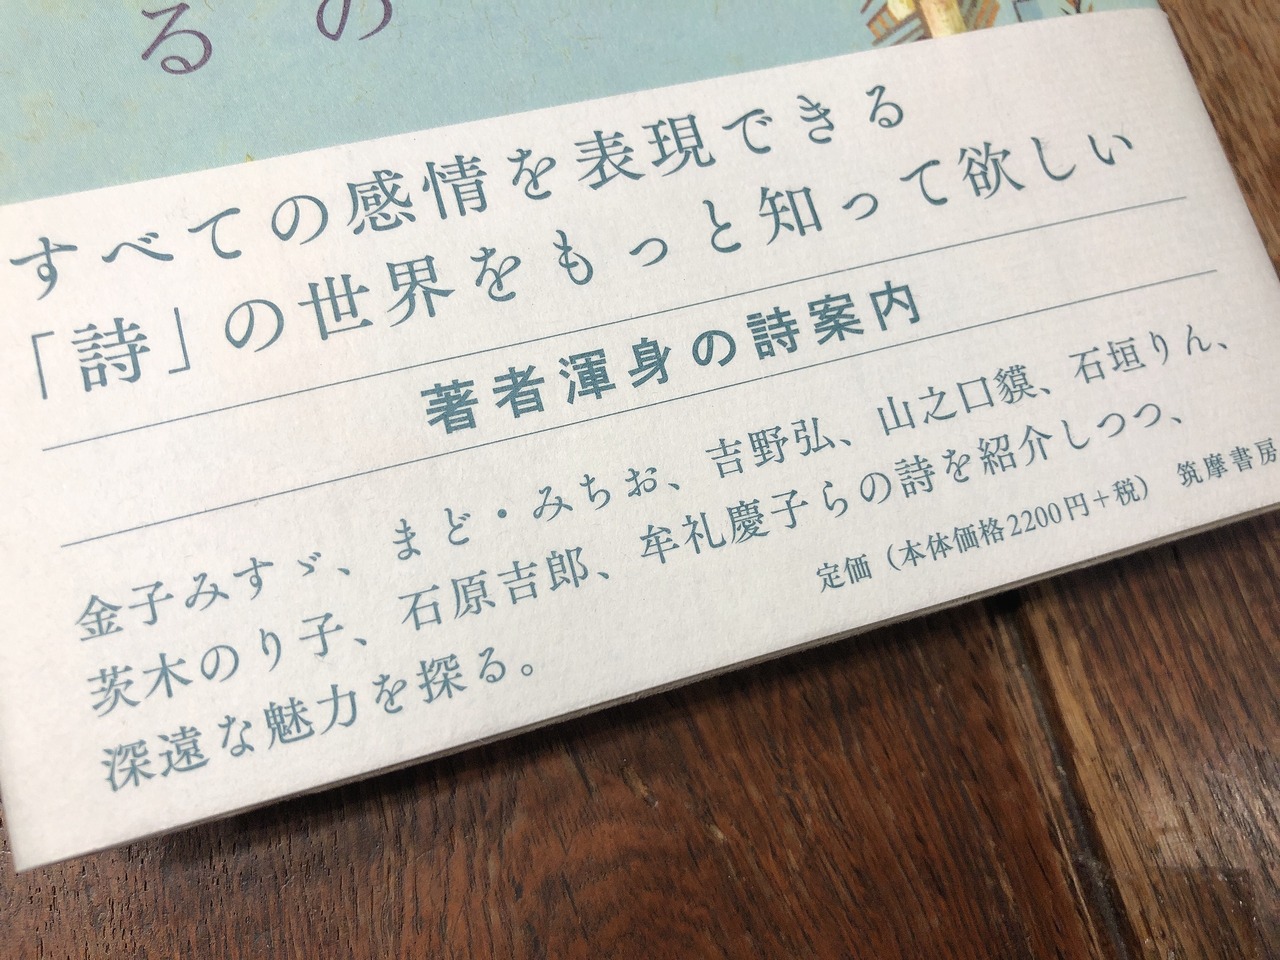 の
る
すべての感情を表現できる
「詩」の世界をもっと知って欲しい
著者渾身の詩案内
金子みすゞ、まど・みちお、吉野弘、山之口貘、石垣りん、
茨木のり子、石原吉郎、牟礼慶子らの詩を紹介しつつ、
深遠な魅力を探る。
定価（本体価格2200円＋税） 筑摩書房